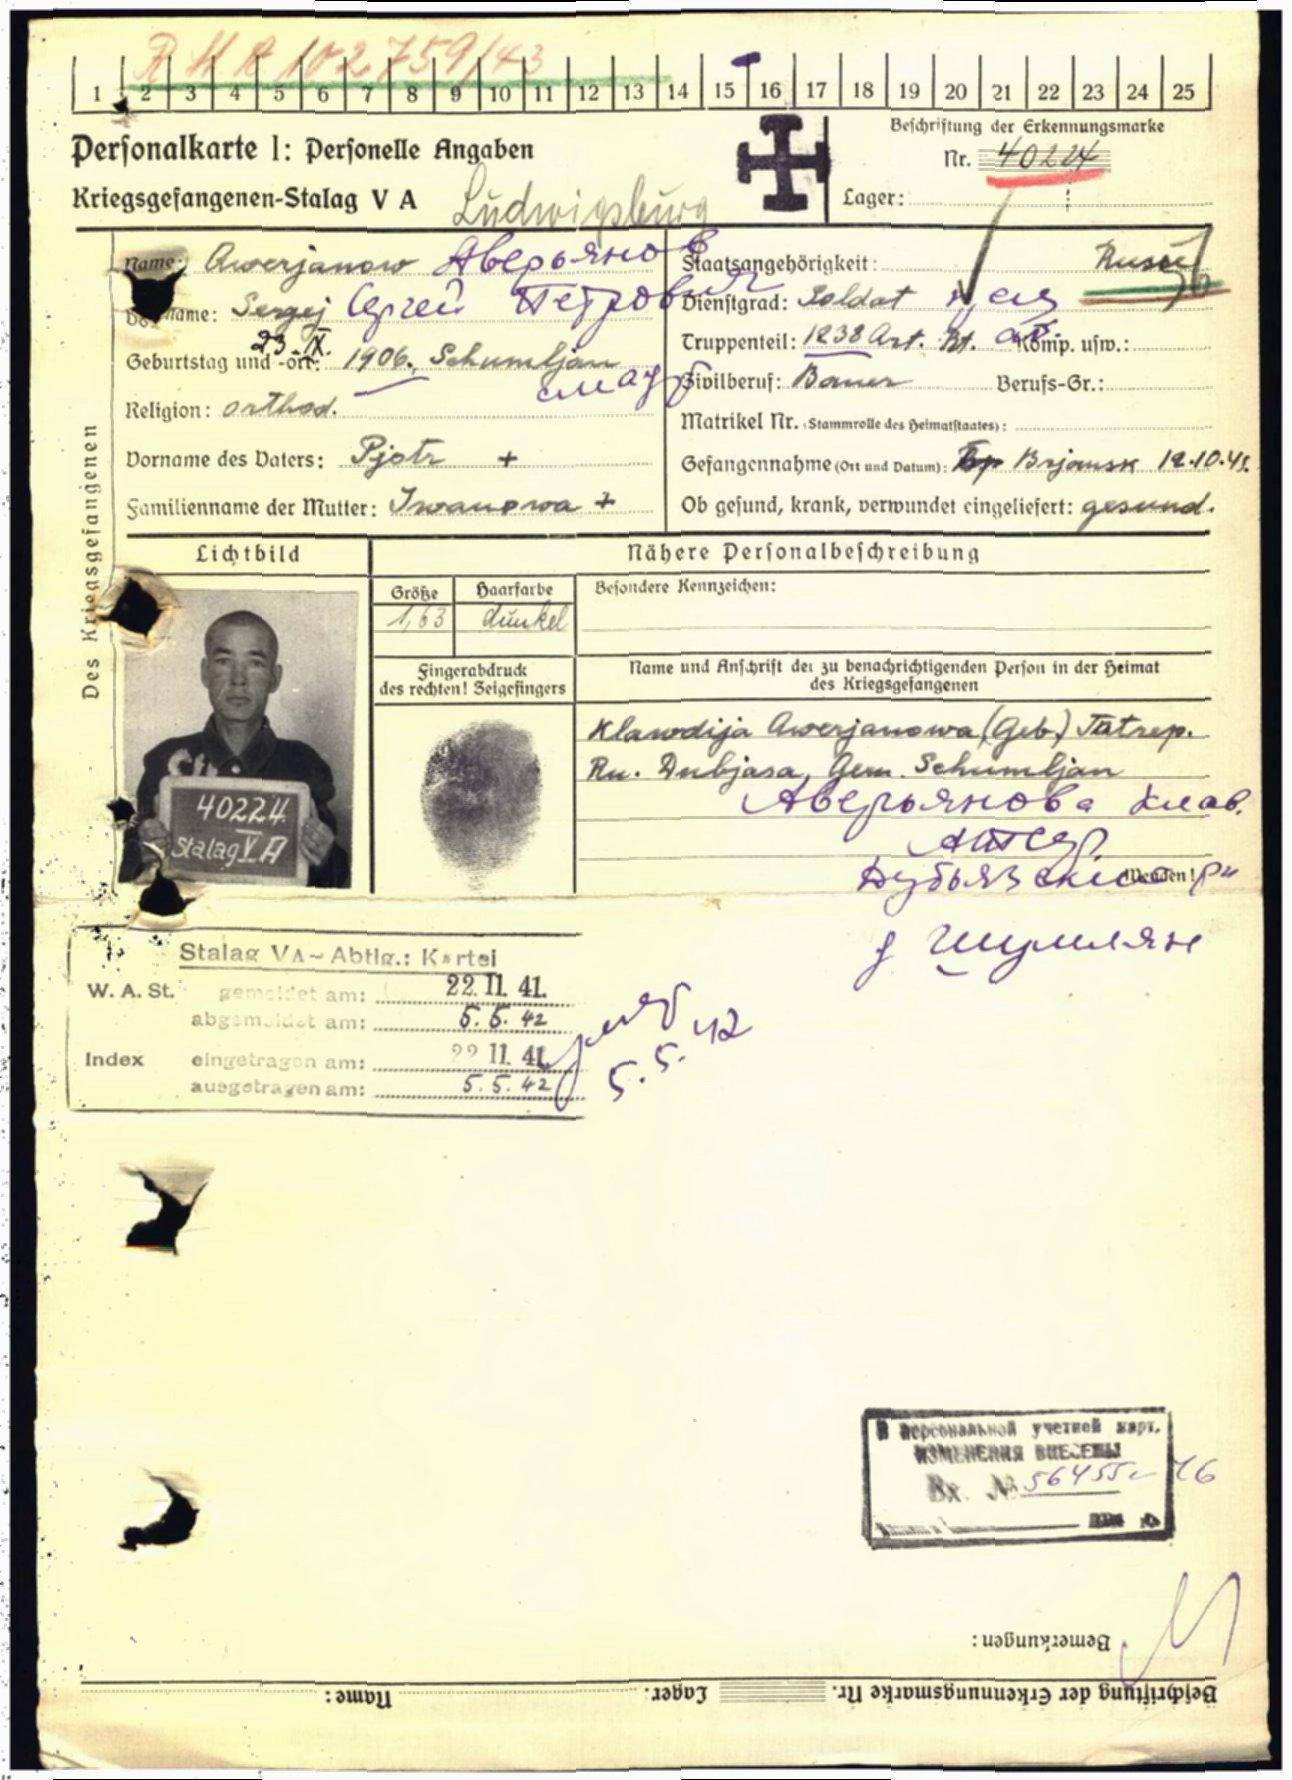 R M A 102759/43
1 2 3 4 5 6 7 8 9 10 11 12 13 14 15 16 17 18 19 20 21 22 23 24 25
Personalkarte I: Personelle Angaben
Kriegsgefangenen-Stalag V A Ludwigsburg
Beschriftung der Erkennungsmarke
Nr. 40224
Lager:
Des Kriegsgefangenen
Name: Awerjanow Аверьянов
Vorname: Sergej Сергей Петрович
Geburtstag und -ort: 23.X. 1906. Schumljan
Religion: orthod.
Vorname des Vaters: Pjotr +
Familienname der Mutter: Iwanowa +
Staatsangehörigkeit: Russe
Dienstgrad: Soldat
Truppenteil: 1238 Art. Komp. usw.:
Zivilberuf: Bauer Berufs-Gr.:
Matrikel Nr. (Stammrolle des Heimatstaates):
Gefangennahme (Ort und Datum): Brjansk 12.10.41.
Ob gesund, krank, verwundet eingeliefert: gesund.
Lichtbild
40224.
Stalag V A
Nähere Personalbeschreibung
Größe Haarfarbe
1,63 dunkel
Besondere Kennzeichen:
Fingerabdruck
des rechten! Zeigefingers
Name und Anschrift der zu benachrichtigenden Person in der Heimat
des Kriegsgefangenen
Klawdija Awerjanowa (Geb.)
Ru. Dubjasa, Gem. Schumljan
Аверьянова Клав.
Дубьязский р-н
Wenden!
д Шумлян
Stalag VA - Abtlg.: Kartei
W. A. St. gemeldet am: 22. 11. 41.
abgemeldet am: 5. 5. 42
Index eingetragen am: 22 11. 41.
ausgetragen am: 5. 5. 42
5.5.42
В персональной учетной карт.
ИЗМЕНЕНИЯ ВНЕСЕНЫ
Вх. №
Bemerkungen:
Beschriftung der Erkennungsmarke Nr. Lager: Name: